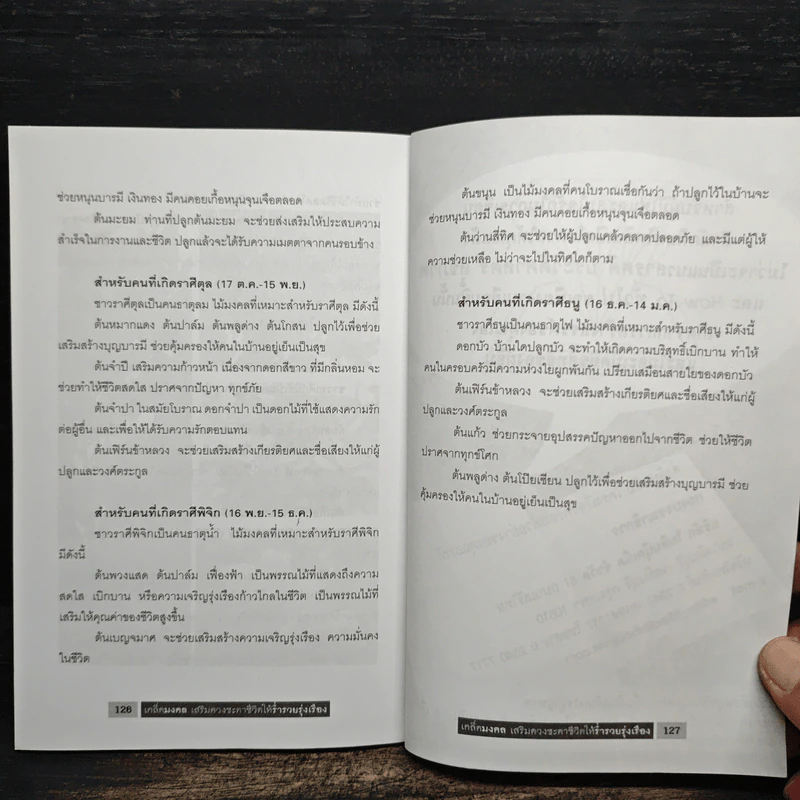 ช่วยหนุนบารมี เงินทอง มีคนคอยเกื้อหนุนจุนเจือตลอด
ต้นมะยม ท่านที่ปลูกต้นมะยม จะช่วยส่งเสริมให้ประสบความ
สำเร็จในการงานและชีวิต ปลูกแล้วจะได้รับความเมตตาจากคนรอบข้าง
สำหรับคนที่เกิดราศีตุล (17 ต.ค.-15 พ.ย.)
ชาวราศีตุลเป็นคนธาตุลม ไม้มงคลที่เหมาะสำหรับราศีตุล มีดังนี้
ต้นหมากแดง ต้นปาล์ม ต้นพลูด่าง ต้นโกสน ปลูกไว้เพื่อช่วย
เสริมสร้างบุญบารมี ช่วยคุ้มครองให้คนในบ้านอยู่เย็นเป็นสุข
ต้นจำปี เสริมความก้าวหน้า เนื่องจากดอกสีขาว ที่มีกลิ่นหอม จะ
ช่วยทำให้ชีวิตสดใส ปราศจากปัญหา ทุกข์ภัย
ต้นจำปา ในสมัยโบราณ ดอกจำปา เป็นดอกไม้ที่ใช้แสดงความรัก
ต่อผู้อื่น และเพื่อให้ได้รับความรักตอบแทน
ต้นเฟิร์นข้าหลวง จะช่วยเสริมสร้างเกียรติยศและชื่อเสียงให้แก่ผู้
ปลูกและวงศ์ตระกูล
สำหรับคนที่เกิดราศีพิจิก (16 พ.ย.-15 ธ.ค.)
ชาวราศีพิจิกเป็นคนธาตุน้ำ ไม้มงคลที่เหมาะสำหรับราศีพิจิก
มีดังนี้
ต้นพวงแสด ต้นปาล์ม เฟื่องฟ้า เป็นพรรณไม้ที่แสดงถึงความ
สดใส เบิกบาน หรือความเจริญรุ่งเรืองก้าวไกลในชีวิต เป็นพรรณไม้ที่
เสริมให้คุณค่าของชีวิตสูงขึ้น
ต้นเบญจมาศ จะช่วยเสริมสร้างความเจริญรุ่งเรือง ความมั่นคง
ในชีวิต
126 เคล็ดมงคล เสริมดวงชะตาชีวิตให้ร่ำรวยรุ่งเรือง
ต้นขนุน เป็นไม้มงคลที่คนโบราณเชื่อกันว่า ถ้าปลูกไว้ในบ้านจะ
ช่วยหนุนบารมี เงินทอง มีคนคอยเกื้อหนุนจุนเจือตลอด
ต้นว่านสี่ทิศ จะช่วยให้ผู้ปลูกแคล้วคลาดปลอดภัย และมีแต่ผู้ให้
ความช่วยเหลือ ไม่ว่าจะไปในทิศใดก็ตาม
สำหรับคนที่เกิดราศีธนู (16 ธ.ค.-14 ม.ค.)
ชาวราศีธนูเป็นคนธาตุไฟ ไม้มงคลที่เหมาะสำหรับราศีธนู มีดังนี้
ดอกบัว บ้านใดปลูกบัว จะทำให้เกิดความบริสุทธิ์เบิกบาน ทำให้
คนในครอบครัวมีความห่วงใยผูกพันกัน เปรียบเสมือนสายใยของดอกบัว
ต้นเฟิร์นข้าหลวง จะช่วยเสริมสร้างเกียรติยศและชื่อเสียงให้แก่ผู้
ปลูกและวงศ์ตระกูล
ต้นแก้ว ช่วยกระจายอุปสรรคปัญหาออกไปจากชีวิต ช่วยให้ชีวิต
ปราศจากทุกข์โศก
ต้นพลูด่าง ต้นโป๊ยเซียน ปลูกไว้เพื่อช่วยเสริมสร้างบุญบารมี ช่วย
คุ้มครองให้คนในบ้านอยู่เย็นเป็นสุข
เคล็ดมงคล เสริมดวงชะตาชีวิตให้ร่ำรวยรุ่งเรือง 127